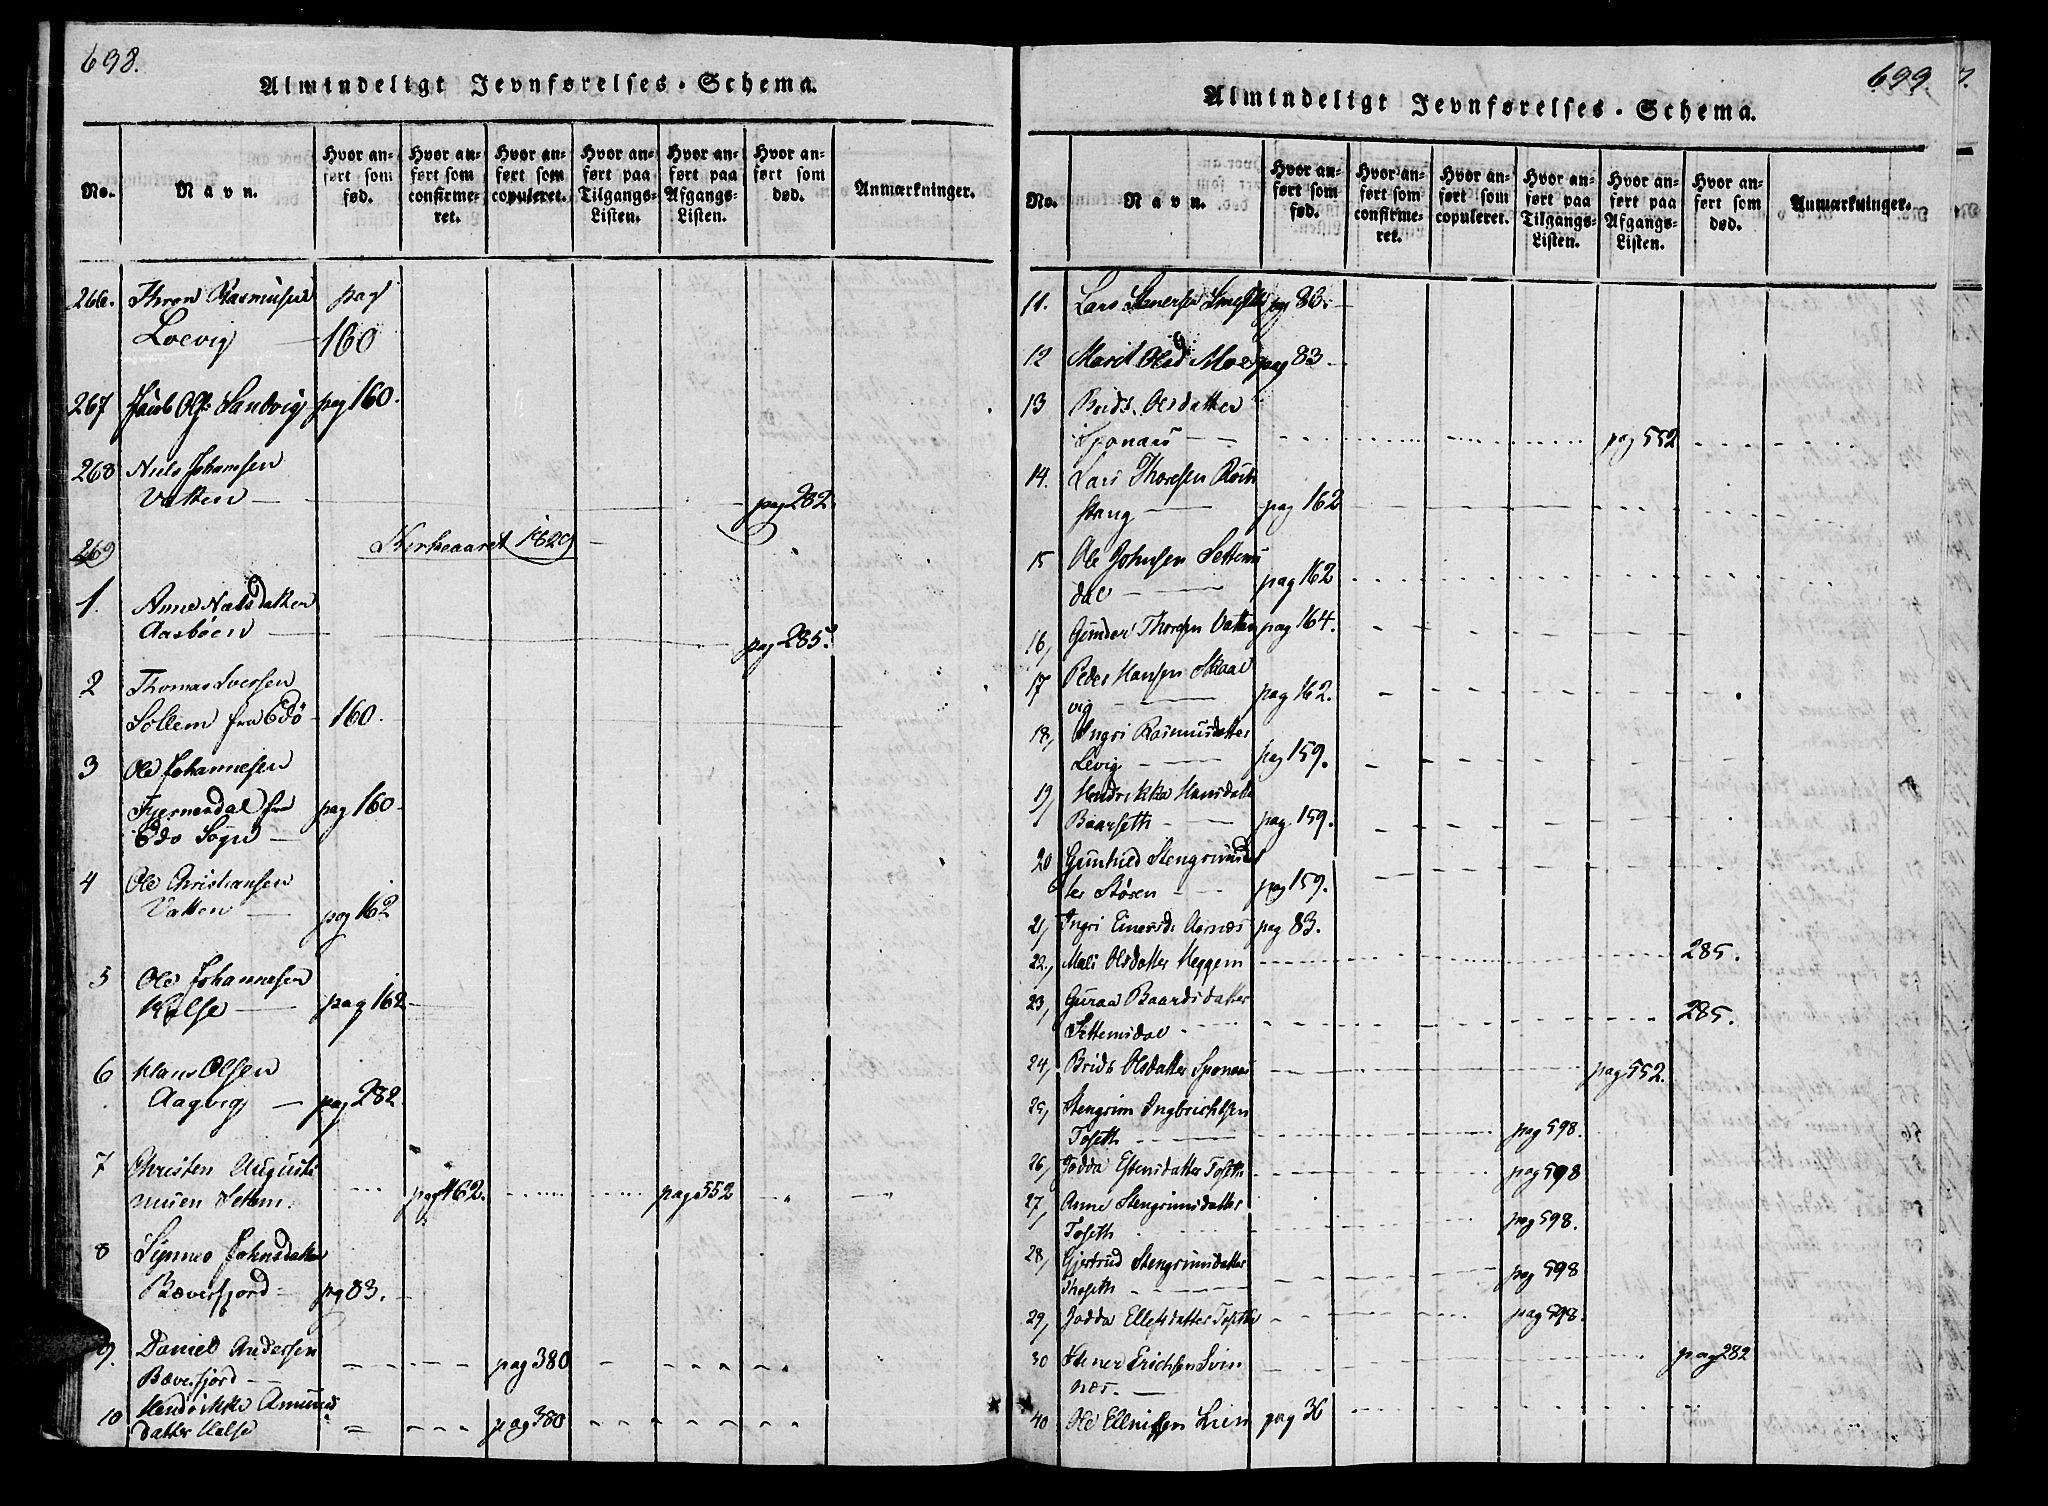 698.
Almindeligt Jevnførelses-Schema.
No.
Navn.
Hvor anført som fød.
Hvor anført som confirmeret.
Hvor anført som copuleret.
Hvor anført paa Tilgangs-Listen.
Hvor anført paa Afgangs-Listen.
Hvor anført som død.
Anmærkninger.
266. Thron Rasmusen pag
Loevig 160
267 Jacob Ols: Sandvig pag 160.
268 Niels Johansen
Vatten pag 282.
269 Kirkeaaret 1829
1. Anne Nielsdatter
Aasbøen pag 285.
2 Thomas Iversen
Sollem fra Edö 160.
3 Ole Johannesen
Fjernesdal fra pag 160
Edö Sogn
4 Ole Christiansen
Vatten pag 162
5 Ole Johannesen
Halse pag 162
6 Hans Olsen
Aagvig pag 282.
7 Christen Augusti
nusen Settem. pag 162. pag 552
8 Synnev Johnsdatter
Bæverfjord pag 83.
9. Daniel Andersen pag 380
Bæverfjord
10 Hendrikke Amunds pag 380
datter Halse
699.
Almindeligt Jevnførelses-Schema.
No.
Navn.
Hvor anført som fød.
Hvor anført som confirmeret.
Hvor anført som copuleret.
Hvor anført paa Tilgangs-Listen.
Hvor anført paa Afgangs-Listen.
Hvor anført som død.
Anmærkninger.
11. Lars Stenersen pag 83.
12 Marit Olsd Moe pag 83
13 Brids. Olsdatter
Sponaas pag 552
14. Lars Thoresen
stang pag 162
15 Ole Johnsen Settems
dal pag 162
16, Gunder Thoresen Vatten pag 164.
17 Peder Hansen Skaal
vig pag 162.
18, Ingri Rasmusdatter
Levig pag 159.
19, Hendrikka Hansdatter
Baarseth pag 159.
20 Gunhild Stengrimsdat
ter Støren pag 159.
21, Ingri Einersd: Aarnæs pag 83.
22, Mali Olsdatter Heggem 285.
23, Guraa Baardsdatter
Settemsdal 285.
24, Brids Olsdatter Sponaas pag 552.
25, Stengrim Ingbrichtsen
Toseth pag 598.
26, Jodda Estensdatter Toseth pag 598
27, Anne Stengrimsdatter
Toseth pag 598.
28, Gjertrud Stengrimsdatter
Thoseth pag 598
29, Jodda Ellefsdatter Toseth pag 598.
30 Stener Erichsen Svin pag 282
næs.
40 Ole Ellefsen Lien pag 36